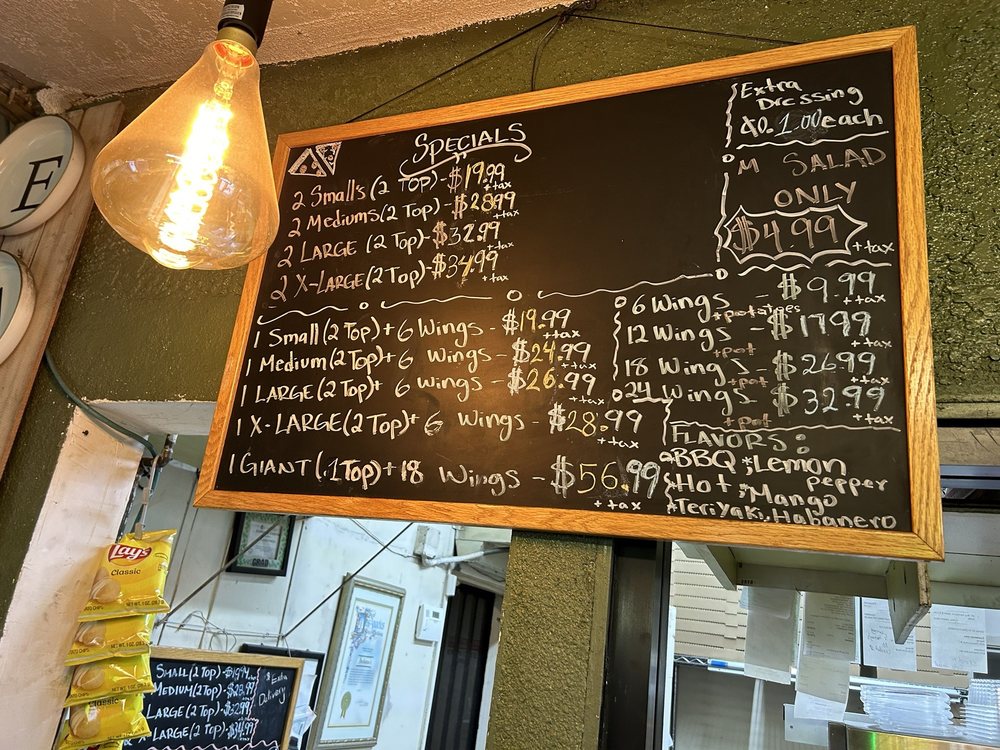 SPECIALS
2 Small's (2 Top) - $19.99 + tax
2 Mediums (2 Top) - $28.99 + tax
2 LARGE (2 Top) - $32.99 + tax
2 X-LARGE (2 Top) - $34.99 + tax
1 Small (2 Top) + 6 Wings - $19.99 + tax
1 Medium (2 Top) + 6 Wings - $24.99 + tax
1 LARGE (2 Top) + 6 Wings - $26.99 + tax
1 X-LARGE (2 Top) + 6 Wings - $28.99 + tax
1 GIANT (1 Top) + 18 Wings - $56.99 + tax
Extra
Dressing
$0.1.00 each
M SALAD
ONLY
$4.99 + tax
6 Wings - $9.99 + tax
+ potatoes
12 Wings - $17.99 + tax
+ pot
18 Wings - $26.99 + tax
+ pot
24 Wings - $32.99 + tax
+ pot
FLAVORS:
*BBQ *Lemon
pepper
*Hot *Mango
*Teriyaki, Habanero
E
Lay's
Classic
Classic
SMALL (2 Top) -
MEDIUM (2 Top) - $28.99
LARGE (2 Top) - $32.99
X-LARGE (2 Top) - $34.99
Extra
Delivery